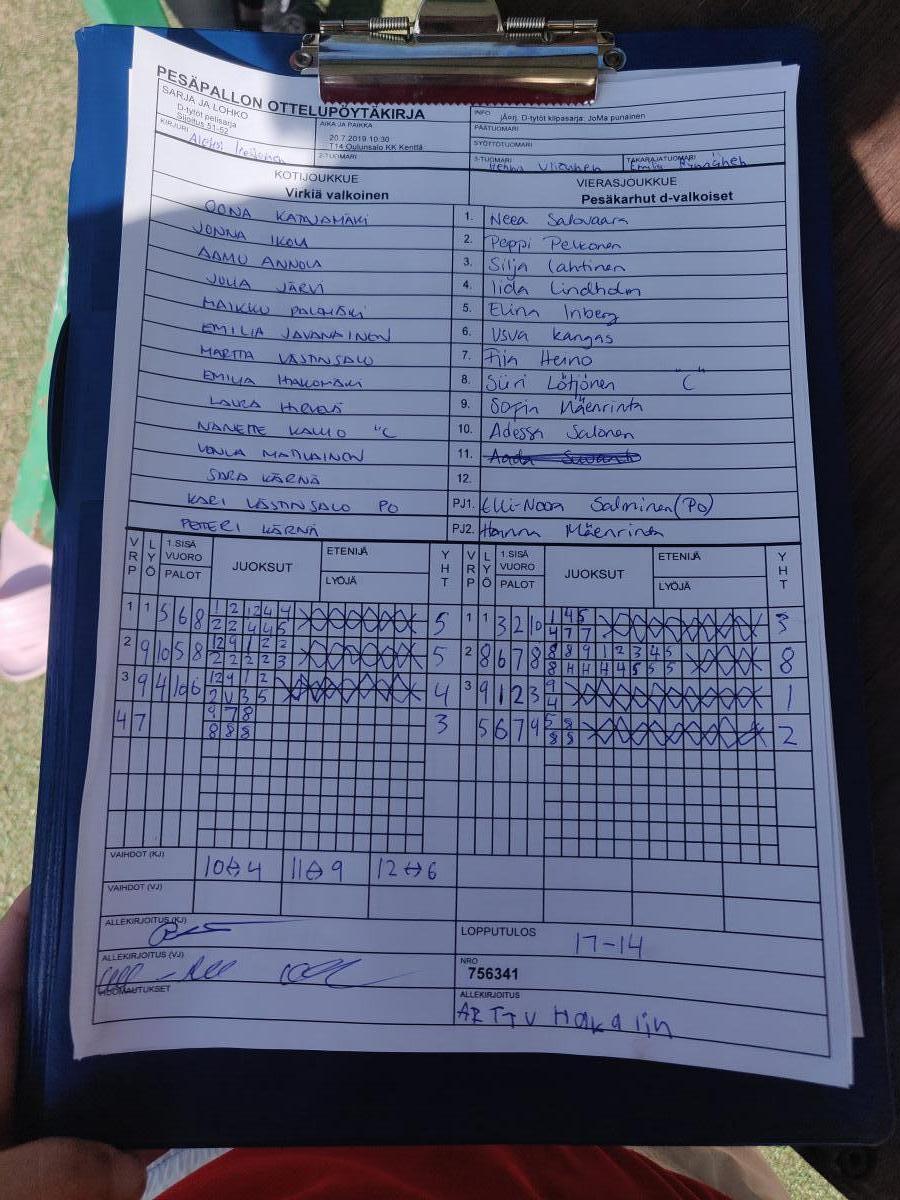 PESÄPALLON OTTELUPÖYTÄKIRJA
SARJA JA LOHKO
D-tytöt pelisarja
Sijoitus 51-52
AIKA JA PAIKKA
20.7.2019 10:30
T14 Oulunsalo KK Kenttä
INFO
jÄerj. D-tytöt kilpasarja: JoMa punainen
PÄÄTUOMARI
SYÖTTÖTUOMARI
KIRJURI
2-TUOMARI
3-TUOMARI
TAKARAJATUOMARI
KOTIJOUKKUE
Virkiä valkoinen
VIERASJOUKKUE
Pesäkarhut d-valkoiset
OONA KATAJAMÄKI 1. Neea Salovaara
JONNA IKOLA 2. Peppi Pelkonen
AAMU ANNOLA 3. Silja Lahtinen
JULIA JÄRVI 4. Iida Lindholm
MAIKKU PALOMÄKI 5. Elina Inberg
EMILIA JAVANAINEN 6. Usva Kangas
MARTTA VÄSTINSALO 7. Fiin Heino
EMILIA HAKOMÄKI 8. Siiri Lötjönen "C"
LAURA HIRVELÄ 9. Sofia Mäenrinta
NANETTE KALLIO "C 10. Adessa Salonen
VENLA MATILAINEN 11.
SARA KÄRNÄ 12.
KARI VÄSTINSALO PO PJ1. Elli-Noora Salminen (PO)
PETTERI KÄRNÄ PJ2. Hanna Mäenrinta
VRP LYÖ 1.SISÄ VUORO PALOT JUOKSUT ETENIJÄ LYÖJÄ YHT VRP LYÖ 1.SISÄ VUORO PALOT JUOKSUT ETENIJÄ LYÖJÄ YHT
1 1 5 6 8 5 1 1 3 2 10 1 4 5 3
4 7 7
2 9 10 5 8 5 2 8 6 7 8 8 8 9 1 2 3 4 5 8
8 4 4 4 4 5 5 5
3 9 4 10 6 4 3 9 1 2 3 9 1
4
4 7 9 7 8 3 5 6 7 9 5 8 2
8 8 8 8 8
VAIHDOT (KJ) 10↔4 11↔9 12↔6
VAIHDOT (VJ)
ALLEKIRJOITUS (KJ)
LOPPUTULOS 17-14
ALLEKIRJOITUS (VJ)
NRO
756341
HUOMAUTUKSET
ALLEKIRJOITUS
ARTTU Hakalin